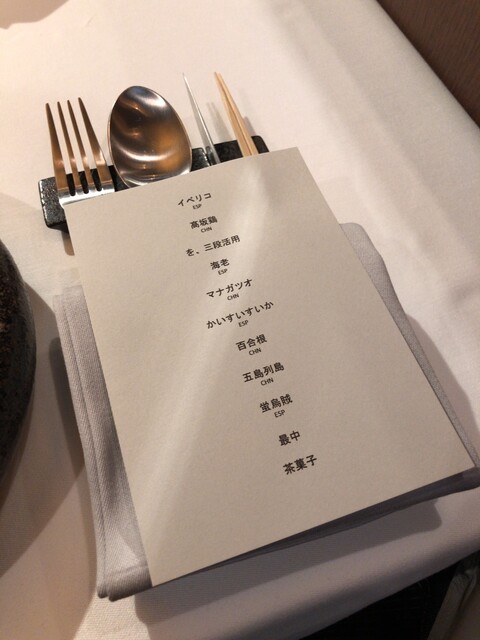 イベリコ
ESP
高坂鶏
CHN
を、三段活用
海老
ESP
マナガツオ
CHN
かいすいすいか
ESP
百合根
CHN
五島列島
CHN
蛍烏賊
ESP
最中
茶菓子